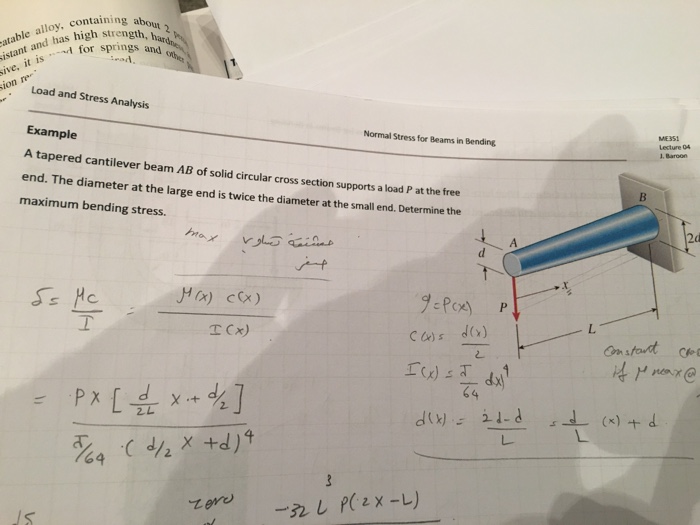 eatable alloy, containing about 2
sistant and has high strength, hardne
sive, it is for springs and othe
sion re
Load and Stress Analysis
Normal Stress for Beams in Bending
ME351
Lecture 04
J. Baroon
Example
A tapered cantilever beam AB of solid circular cross section supports a load P at the free
end. The diameter at the large end is twice the diameter at the small end. Determine the
maximum bending stress.
max
B
2d
A
d
x
P
L
δ = Mc / I = M(x) c(x) / I(x)
g = P(x)
c(x) = d(x) / 2
I(x) = π/64 d(x)^4
d(x) = 2d-d / L = d/L (x) + d
constant
if M max @
= PX [ d/2L x + d/2 ]
π/64 · ( d/2 x + d)^4
zero
-32 L^3 P(2x-L)